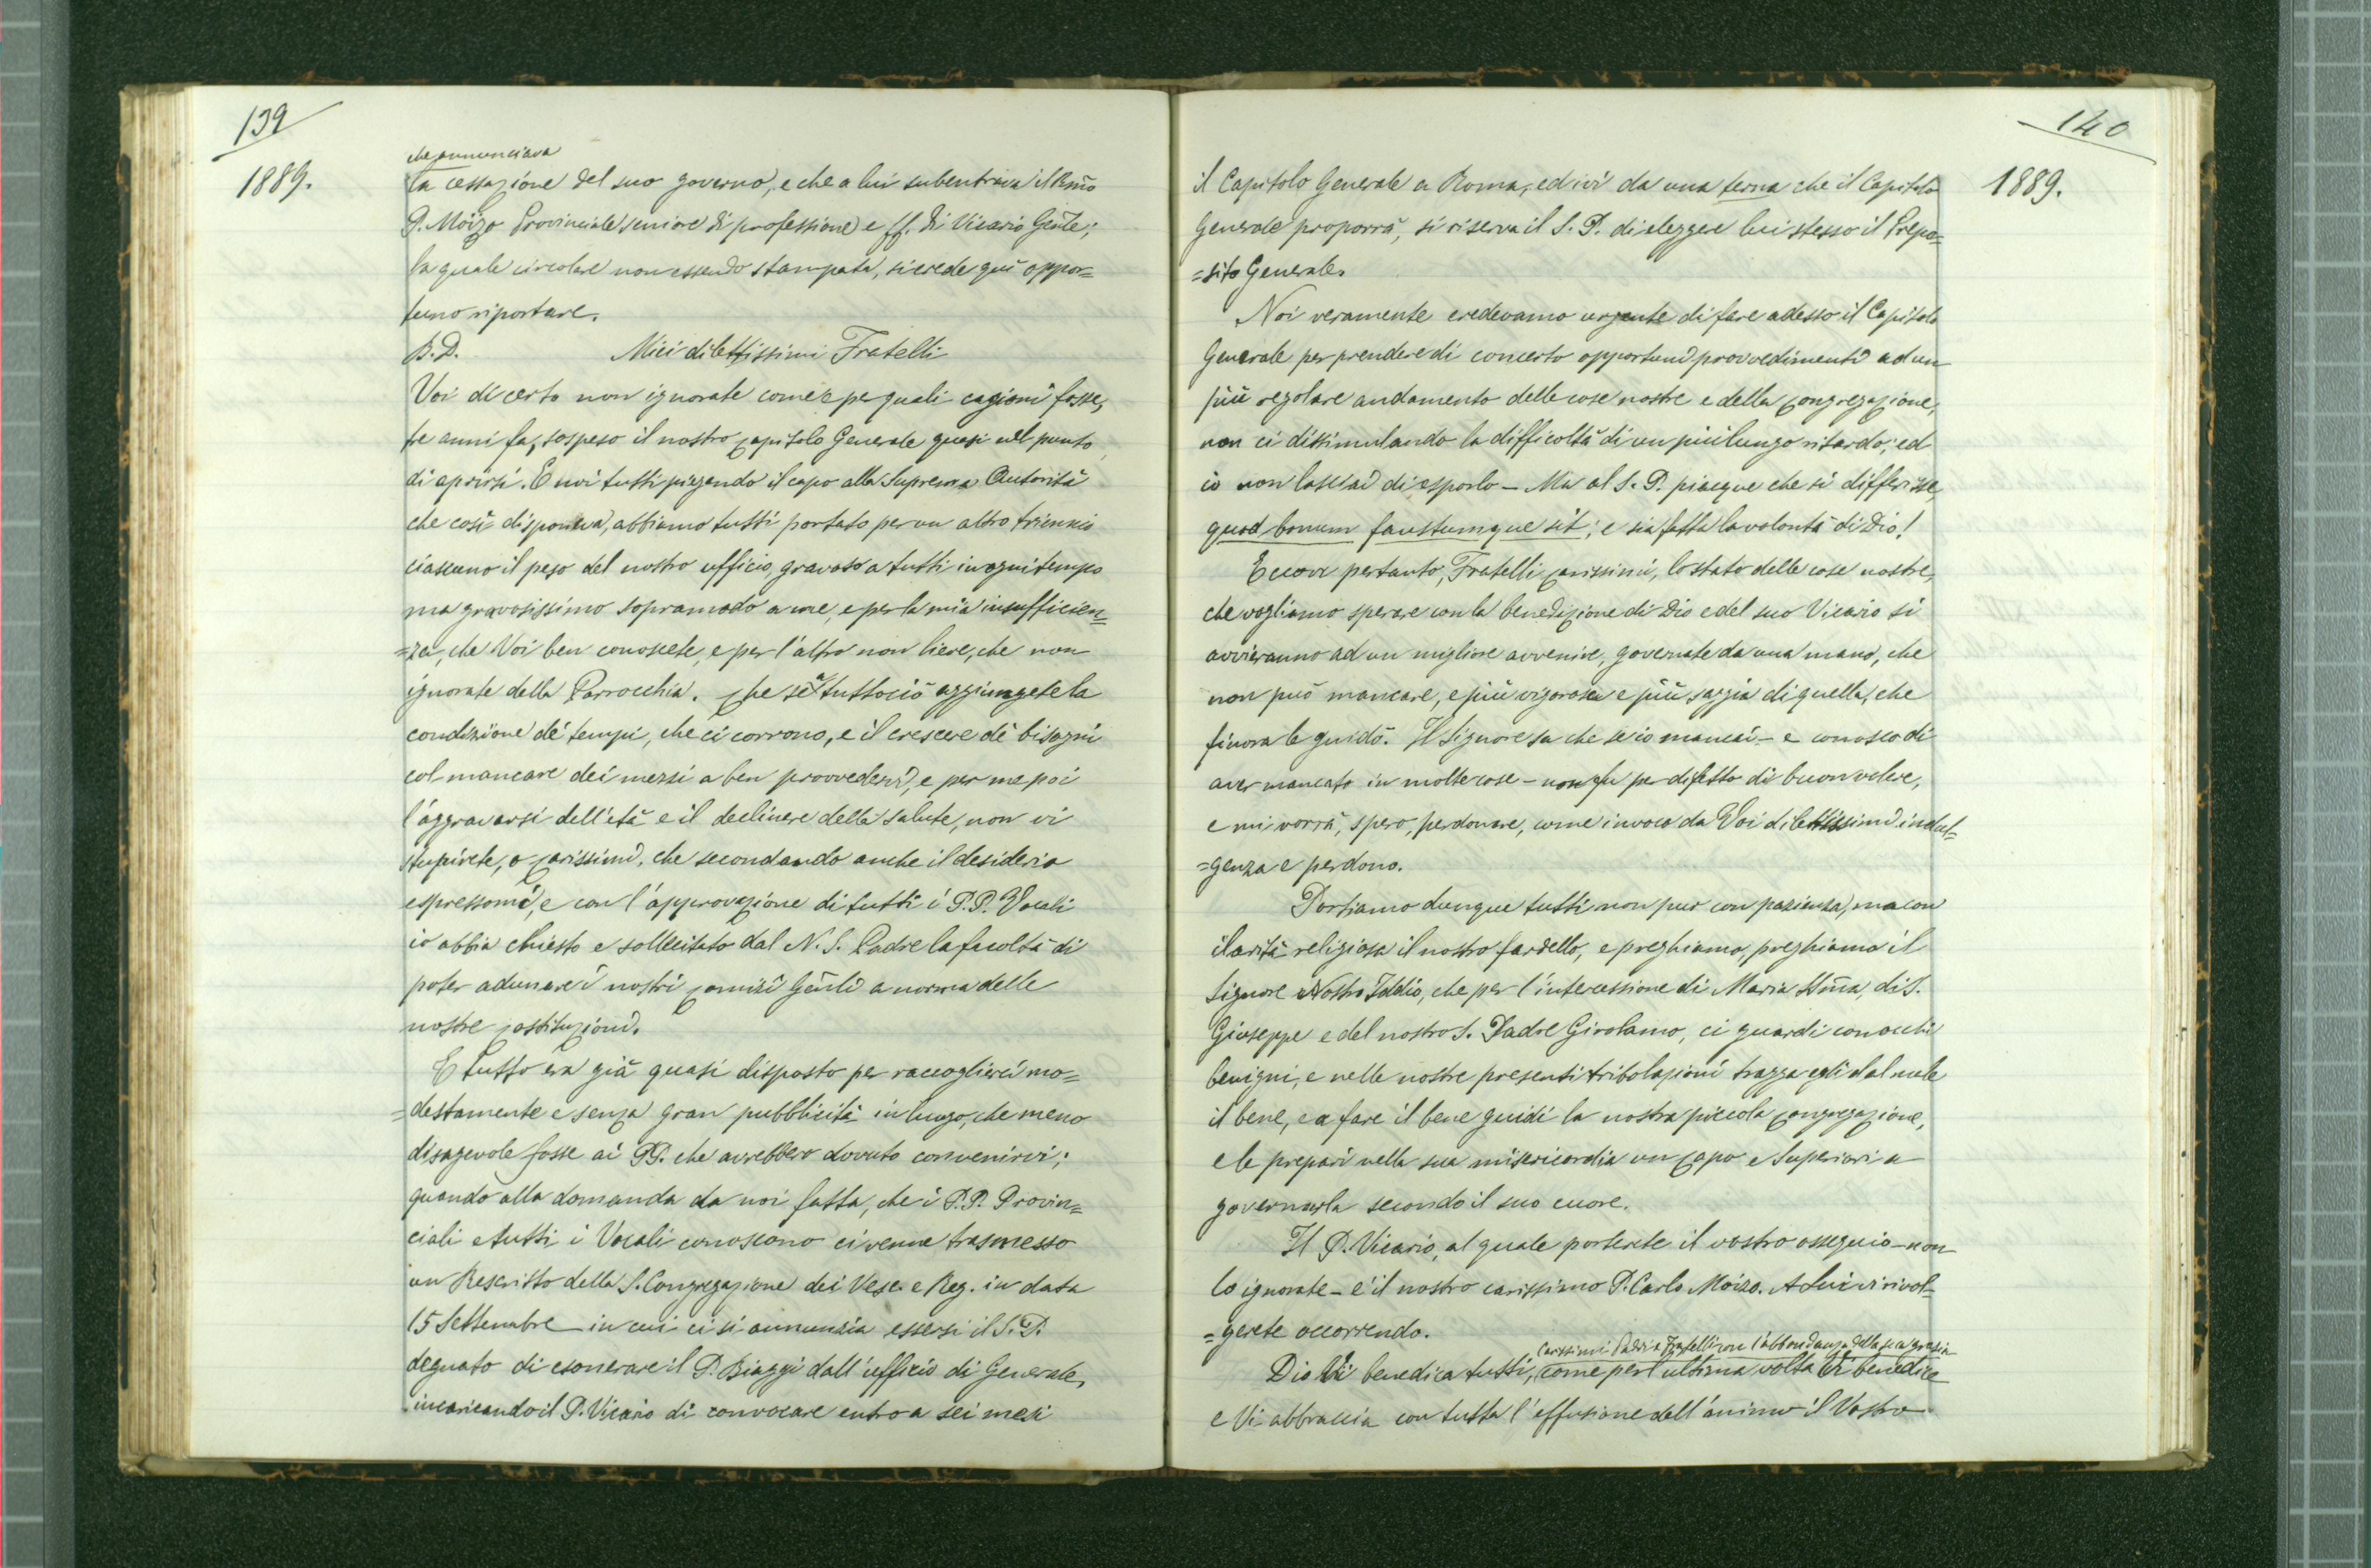 139
1889.
che annunciava
la cessazione del suo governo, e che a lui subentrava il Rmo
P. Moizo Provinciale seniore di professione e ff. di Vicario Gnle;
la quale circolare non essendo stampata, si crede quì oppor=
tuno riportare.
B.D. Miei dilettissimi Fratelli
Voi di certo non ignorate come e per quali cagioni fosse,
tre anni fa, sospeso il nostro Capitolo Generale quasi nel punto
di aprirsi. E noi tutti piegando il capo alla Suprema Autorità
che così disponeva, abbiamo tutti portato per un altro triennio
ciascuno il peso del nostro ufficio, gravoso a tutti in ogni tempo
ma gravosissimo sopramodo a me, e per la mia insufficien=
=za, che Voi ben conoscete, e per l'altro non lieve, che non
ignorate della Parrocchia. Che se a tuttociò aggiungete la
condizione dei tempi, che ci corrono, e il crescere dè bisogni
col mancare dei mezzi a ben provvedervi, e per me poi
l'aggravarsi dell'età e il declinare della salute, non vi
stupirete, o Carissimi, che secondando anche il desiderio
espressomi, e con l'approvazione di tutti i P.P. Vocali
io abbia chiesto e sollecitato dal N. S. Padre la facoltà di
poter adunare i nostri Comizi Gnli a norma delle
nostre Costituzioni.
E tutto era già quasi disposto per raccoglierci mo=
=destamente e senza gran pubblicità in luogo, che meno
disagevole fosse ai PP. che avrebbero dovuto convenirvi;
quando alla domanda da noi fatta, che i P.P. Provin=
ciali e tutti i Vocali conoscono ci venne trasmesso
un Rescritto della S. Congregazione dei Vesc. e Reg. in data
15 Settembre in cui ci si annunzia essersi il S. P.
degnato di esonerare il P. Biaggi dall'ufficio di Generale,
incaricando il P. Vicario di convocare entro a sei mesi
140
1889.
il Capitolo Generale a Roma, ed ivi da una terna che il Capitolo
Generale proporrà, si riserva il S. P. di eleggere lui stesso il Prepo=
=sito Generale.
Noi veramente credevamo urgente di fare adesso il Capitolo
Generale per prendere di concerto opportuni provvedimenti ad un
più regolare andamento delle cose nostre e della Congregazione,
non ci dissimulando la difficoltà di un più lungo ritardo; ed
io non lasciai di esporlo – Ma al S. P. piacque che si differisse,
quod bonum faustumque sit; e sia fatta la volontà di Dio!
Eccovi pertanto, Fratelli Carissimi, lo stato delle cose nostre,
che vogliamo sperare con la benedizione di Dio e del suo Vicario si
avvieranno ad un migliore avvenire, governate da una mano, che
non può mancare, e più vigorosa e più saggia di quella, che
finora le guidò. Il Signore sa che se io mancai – e conosco di
aver mancato in molte cose – non fu per difetto di buon volere,
e mi vorrà, spero, perdonare, come invoco da Voi dilettissimi indul=
=genza e perdono.
Portiamo dunque tutti non pur con pazienza, ma con
ilarità religiosa il nostro fardello, e preghiamo, preghiamo il
Signore Nostro Iddio, che per l'intercessione di Maria SSma, di S.
Giuseppe e del nostro S. Padre Girolamo, ci guardi con occhi
benigni, e nelle nostre presenti tribolazioni tragga egli dal male
il bene, e a fare il bene guidi la nostra piccola Congregazione,
e le prepari nella sua misericordia un Capo e Superiori a
governarla secondo il suo cuore.
Il P. Vicario, al quale porterete il vostro ossequio – non
lo ignorate – è il nostro carissimo P. Carlo Moizo. A Lui vi rivol=
=gerete occorrendo.
Carissimi Padri e Fratelli con l'abbondanza della sua grazia
Dio Vi benedica tutti, come per l'ultima volta Vi benedice
e Vi abbraccia con tutta l'effusione dell'animo il Vostro